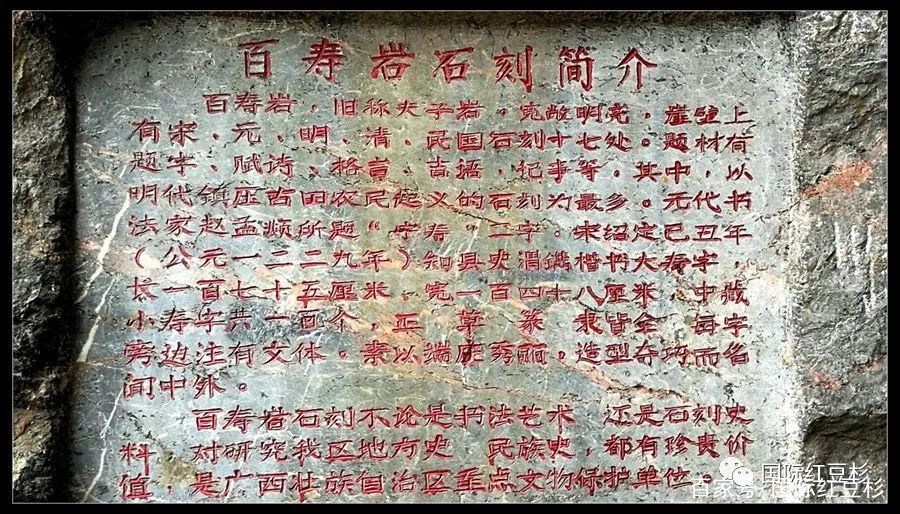 百寿岩石刻简介
百寿岩，旧称夫子岩。宽敞明亮，崖壁上
有宋、元、明、清、民国石刻十七处。题材有
题字、赋诗、格言、吉语、记事等。其中，以
明代镇压古田农民起义的石刻为最多。元代书
法家赵孟頫所题“字寿”二字。宋绍定己丑年
（公元一二二九年）知县史渭镌楷书大寿字，
长一百七十五厘米，宽一百四十八厘米，中藏
小寿字共一百个，正 草 篆 隶皆全 每字
旁边注有文体。素以端庄秀丽。造型夺巧而名
闻中外。
百寿岩石刻不论是书法艺术 还是石刻史
料，对研究我区地方史 民族史，都有珍贵价
值，是广西壮族自治区重点文物保护单位。
国际红豆杉
百家号 国际红豆杉